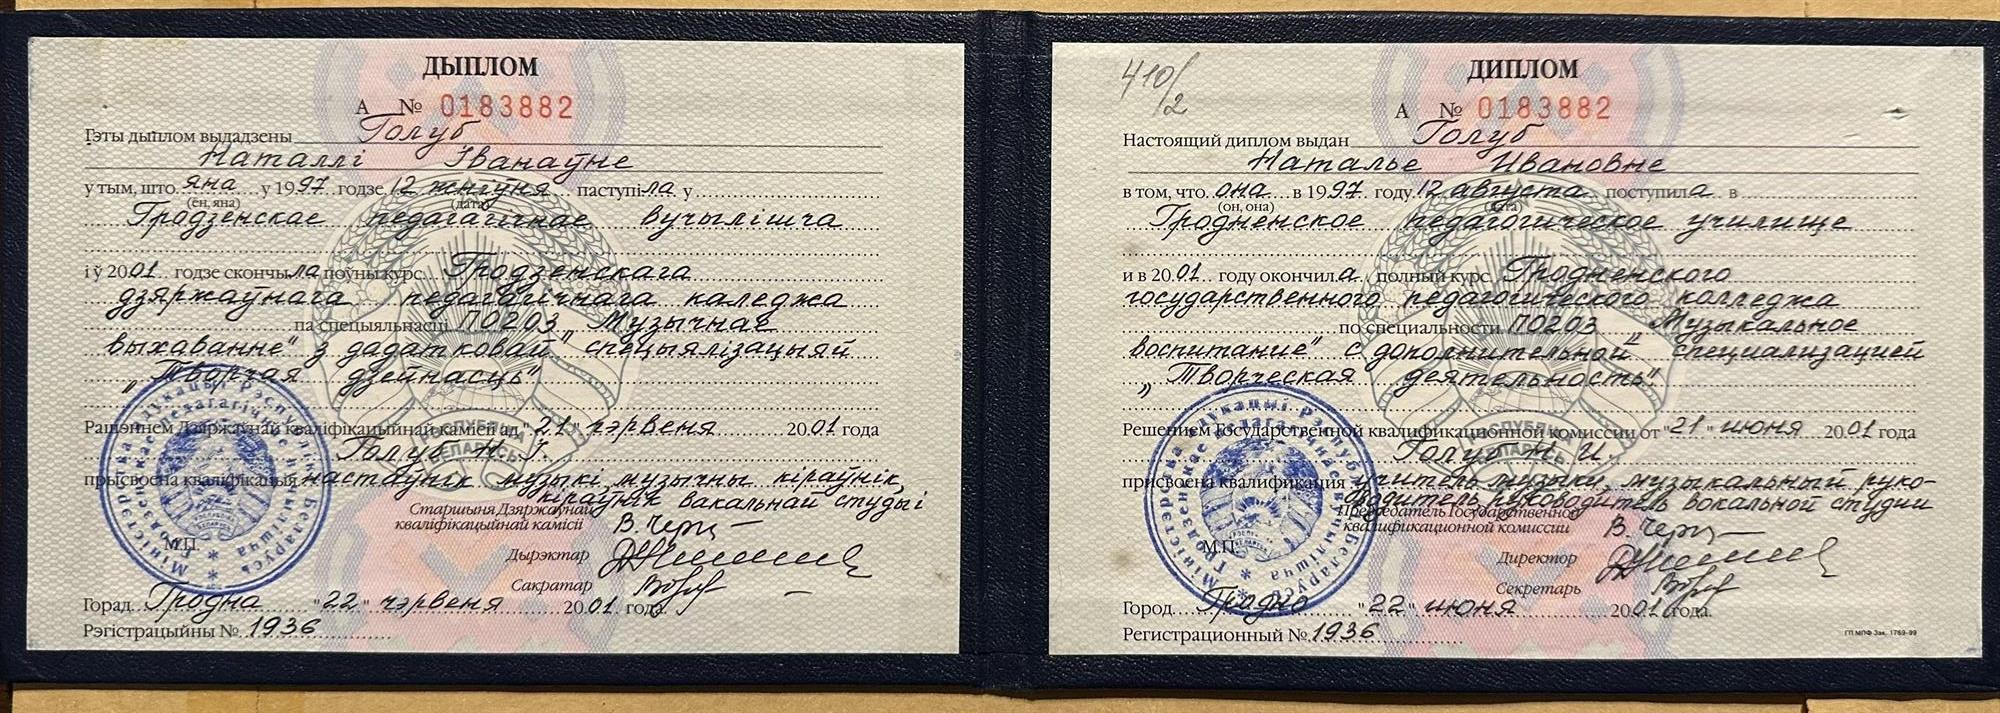 ДЫПЛОМ
А № 0183882
Гэты дыплом выдадзены Голуб
Наталлі Іванаўне
у тым, што яна у 1997 годзе 12 жніўня паступіла у
(ён, яна) (дата)
Гродзенскае педагагічнае вучылішча
і ў 2001 годзе скончыла поўны курс Гродзенскага
дзяржаўнага педагагічнага каледжа
па спецыяльнасці П0203 „Музычнае
выхаванне" з дадатковай спецыялізацыяй
„Творчая дзейнасць"
Рашэннем Дзяржаўнай кваліфікацыйнай камісіі ад "21" чэрвеня 2001 года
Голуб Н. І.
прысвоена кваліфікацыя настаўнік музыкі, музычны кіраўнік,
кіраўнік вакальнай студыі
Старшыня Дзяржаўнай
кваліфікацыйнай камісіі
М.П.
Дырэктар
Сакратар
Горад Гродна "22" чэрвеня 2001 года
Рэгістрацыйны № 1936
410/2
ДИПЛОМ
А № 0183882
Настоящий диплом выдан Голуб
Наталье Ивановне
в том, что она в 1997 году 12 августа поступила в
(он, она) (дата)
Гродненское педагогическое училище
и в 2001 году окончила полный курс Гродненского
государственного педагогического колледжа
по специальности П0203 „Музыкальное
воспитание" с дополнительной специализацией
„Творческая деятельность"
Решением Государственной квалификационной комиссии от "21" июня 2001 года
Голуб Н. И.
присвоена квалификация учитель музыки, музыкальный руко-
водитель, руководитель вокальной студии
Председатель Государственной
квалификационной комиссии
М.П.
Директор
Секретарь
Город Гродно "22" июня 2001 года.
Регистрационный № 1936
ГП МПФ Зак. 1769-99